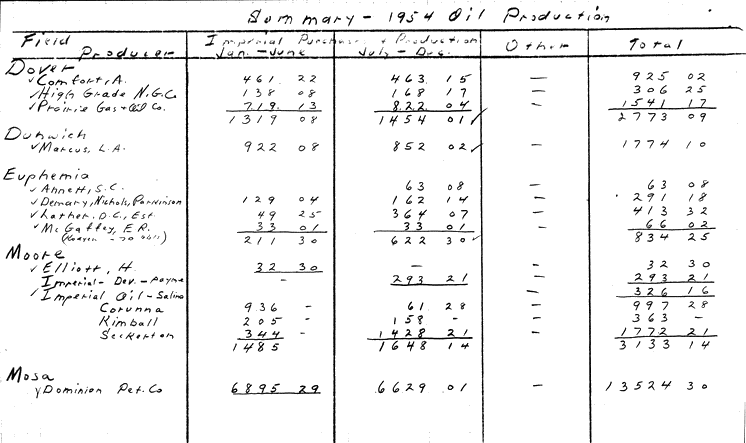 Summary - 1954 Oil Production
Field Producer Imperial Purchases + Production Jan. - June July - Dec. Other Total
Dover
✓Comfort, A. 461 22 463 15 — 925 02
✓High Grade N.G.Co 138 08 168 17 — 306 25
✓Prairie Gas + Oil Co. 719 13 822 04 — 1541 17
1319 08 1454 01 ✓ 2773 09
Dunwich
✓Marcus, L.A. 922 08 852 02 ✓ — 1774 10
Euphemia
✓Annett, S.C. 63 08 — 63 08
✓Demary, Nichols, Parkinson 129 04 162 14 — 291 18
✓Lather, D.C., Est. 49 25 364 07 — 413 32
✓McGaffey, E.R. 33 01 33 01 — 66 02
211 30 622 30 ✓ 834 25
Moore
✓Elliott, H. 32 30 — — 32 30
Imperial - Dev. - Payne - 293 21 — 293 21
✓Imperial Oil - Salina — 326 16
Corunna 936 - 61 28 — 997 28
Kimball 205 - 158 - — 363 -
Seckerton 344 - 1428 21 — 1772 21
1485 1648 14 3133 14
Mosa
✓Dominion Pet. Co 6895 29 6629 01 — 13524 30